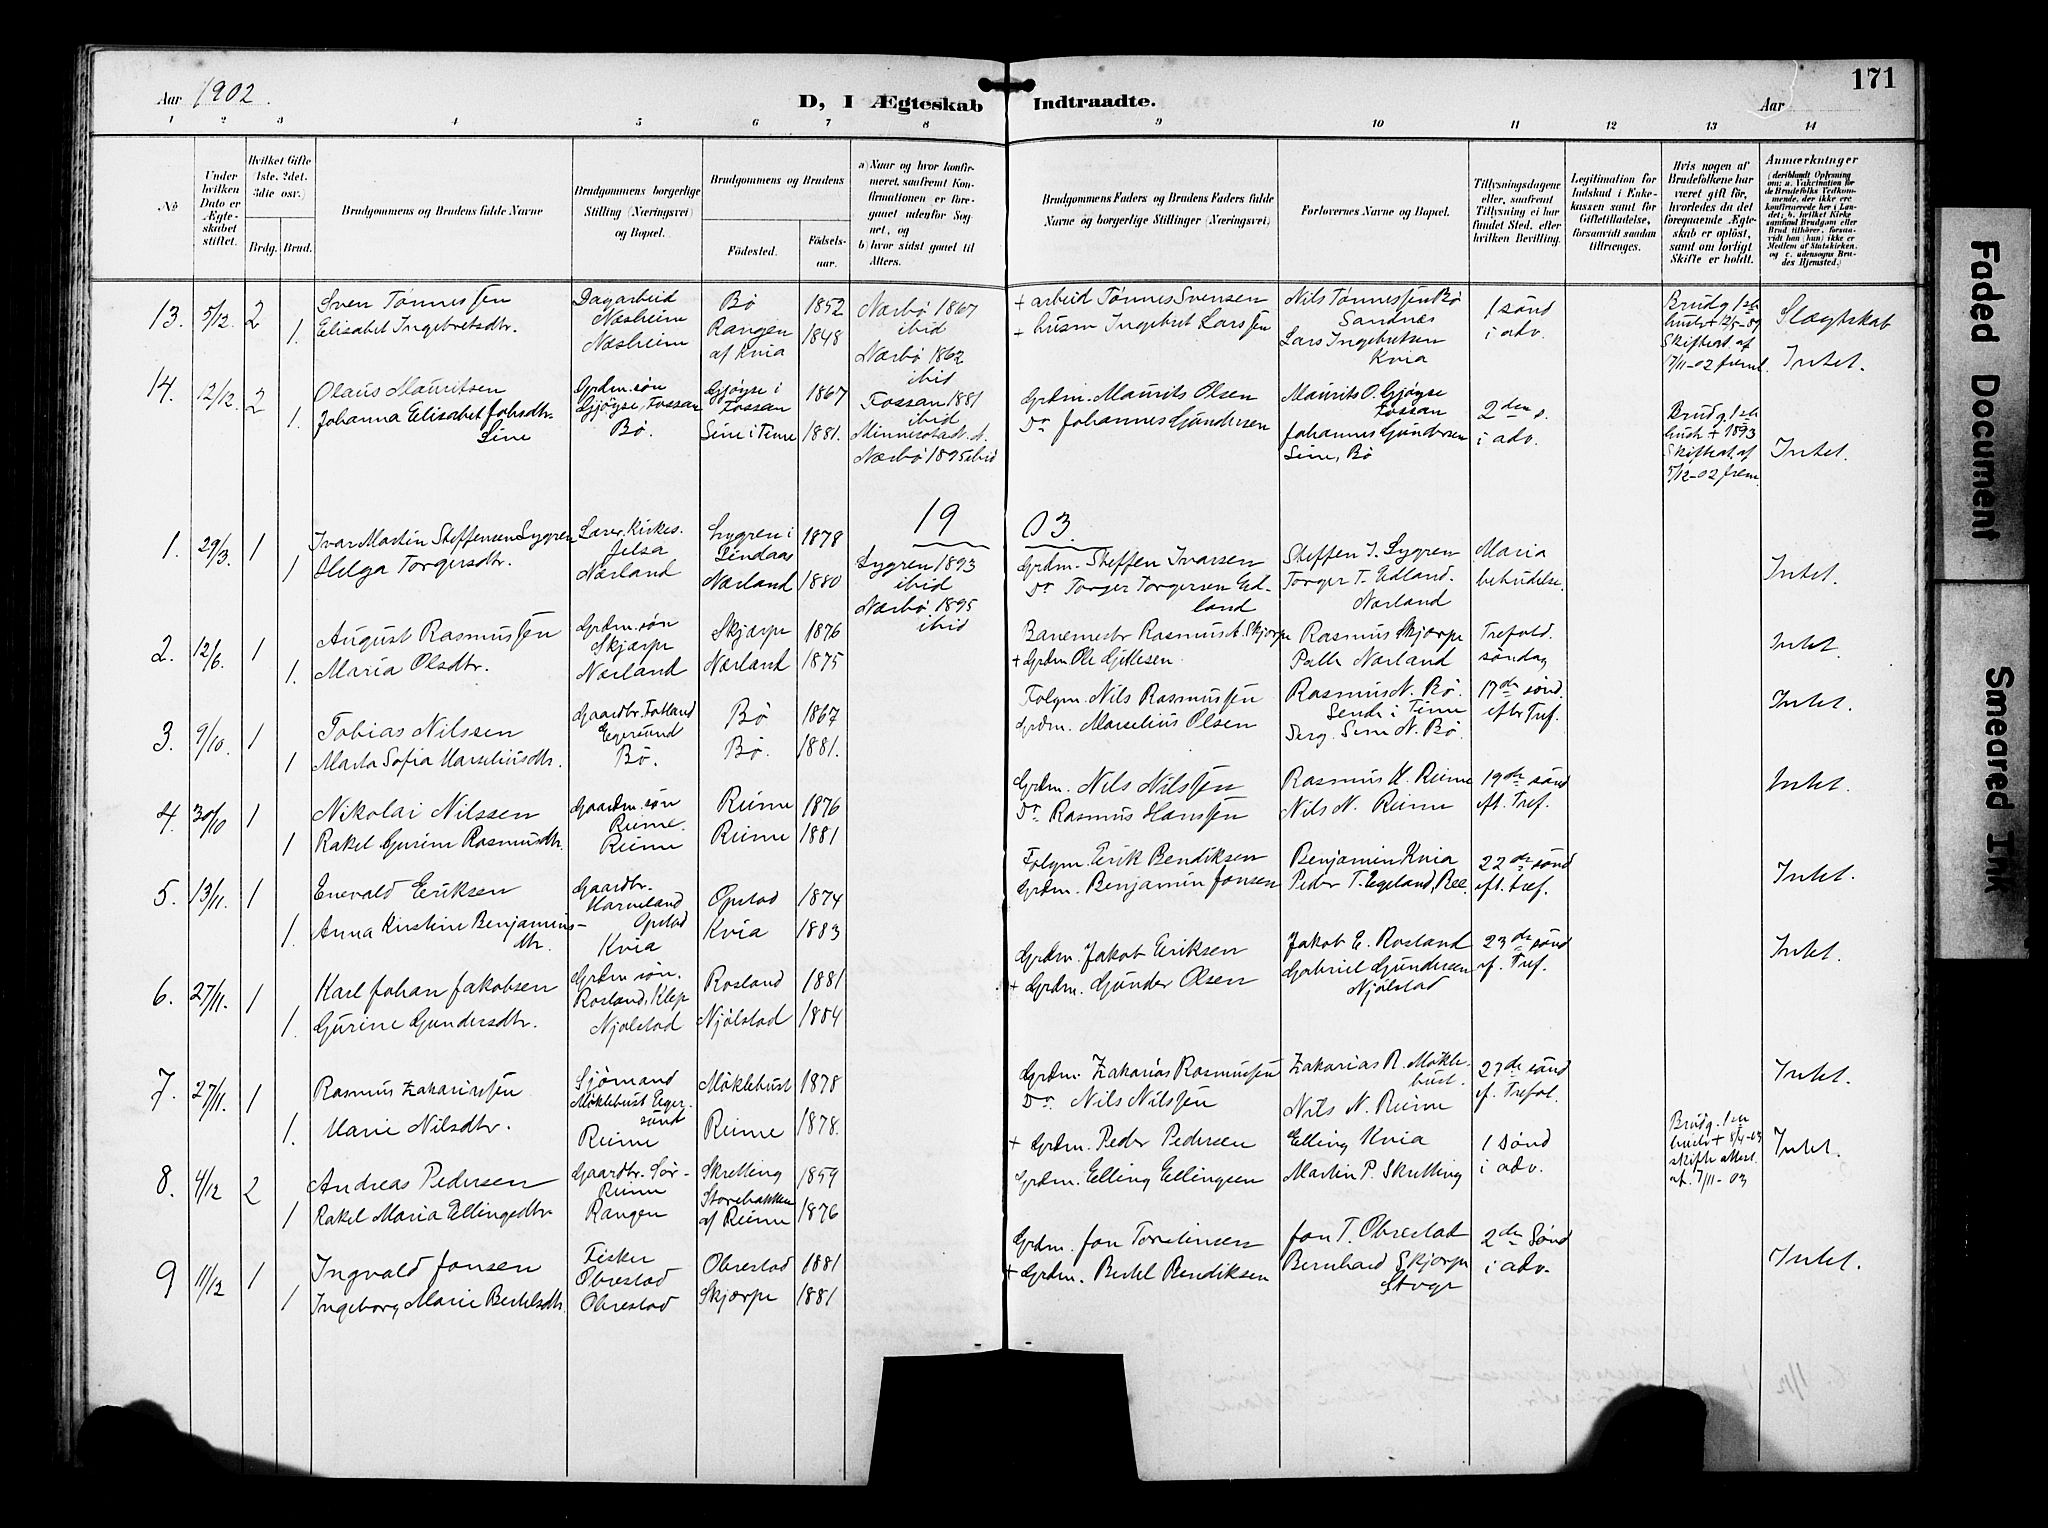 171
Aar 1902.
D, I Ægteskab Indtraadte.
Aar
1 2 3 4 5 6 7 8 9 10 11 12 13 14
No
Under hvilken Dato er Ægteskabet stiftet.
Hvilket Gifte (1ste, 2det, 3die osv.)
Brdg. Brud.
Brudgommens og Brudens fulde Navne
Brudgommens borgerlige Stilling (Næringsvei) og Bopæl.
Brudgommens og Brudens
Födested. Födselsaar.
a) Naar og hvor konfirmeret, saafremt Konfirmationen er foregaaet udenfor Sognet, og
b) hvor sidst gaaet til Alters.
Brudgommens Faders og Brudens Faders fulde Navne og borgerlige Stillinger (Næringsvei)
Forlovernes Navne og Bopæl.
Tillysningsdagene eller, saafremt Tillysning ei har fundet Sted, efter hvilken Bevilling.
Legitimation for Indskud i Enkekassen samt for Giftetilladelse, forsaavidt saadan tiltrænges.
Hvis nogen af Brudefolkene har været gift før, hvorledes da det foregaaende Ægteskab er opløst, samt om lovligt Skifte er holdt.
Anmærkninger
13. 5/12. 2 Sven Tønnessen Dagarbeid Næsheim Bø 1852 Nærbø 1867 ibid + arbeid Tønnes Svensen Nils Tønnessen Bø Sandnæs 1 sønd i adv. Slægtskab
1. Elisabet Ingebretsdtr. Næsheim Rangen af Kvia 1848 Nærbø 1862 ibid + husm Ingebret Larssen Lars Ingebretsen Kvia Intet.
14. 12/12. 2 Olaus Mauritsen Grdm. søn Gjøyse, Fossan Gjøyse i Fossan 1867 Fossan 1881 ibid Grdm. Maurits Olsen Maurits O. Gjøyse Fossan 2den s. i adv.
1. Johanna Elisabet Johsdtr. Sine Bø. Sine i Time 1881. Nærbø 1895 ibid Do Johannes Gundersen Johannes Gundersen Sine, Bø Intet.
19 03.
1. 29/3. 1 Ivar Martin Steffensen Lygren Lærer, Kirkes. Jelsa Lygren i Lindaas 1878 Lygren 1893 ibid Grdm. Steffen Ivarsen Steffen I. Lygren Maria bebudelse. Intet.
1 Helga Torgersdtr. Nærland Nærland 1880 Nærbø 1895 ibid Do Torger Torgersen Edland Torger T. Edland. Nærland
2. 12/6. 1 August Rasmussen Grdm. søn Skjærpe Skjærpe 1876 Banemestr Rasmus A. Skjærpe Rasmus Skjærpe Trefold. søndag Intet.
1. Maria Olsdtr. Nærland Nærland 1875 + Grdm Ole Gjettesen Palle Nærland
3. 9/10. 1 Tobias Nilssen Gaardbr. Fotland Egersund Bø 1867 Folgm Nils Rasmussen Rasmus N. Bø. Sende i Time 17de sønd. eftr Tref. Intet.
1 Marta Sofia Marseliusdtr. Bø. Bø. 1881. Grdm. Marselius Olsen Serg. Sem N. Bø.
4. 30/10 1 Nikolai Nilssen Gaardm. søn Reime. Reime 1876 Grdm. Nils Nilssen Rasmus H. Reime 19de sønd eft. Tref. Intet.
1 Rakel Gurine Rasmusdtr. Reime Reime 1881 Do. Rasmus Hanssen Nils N. Reime
5. 13/11. 1 Enevald Eriksen Gaardbr. Harveland Opstad Opstad 1874 Folgm. Erik Bendiksen Benjamin Kvia 22de sønd eft. tref. Intet.
1. Anna Kirstine Benjaminsdtr. Kvia Kvia 1883 Grdm. Benjamin Jonsen Peder T. Egeland, Ree.
6. 27/11. 1 Karl Johan Jakobsen Grdm søn. Rosland, Klep Rosland 1881 Grdm. Jakob Eriksen Jakob E. Rosland 23de sønd ef. Tref. Intet.
1. Gurine Gundersdtr. Njølstad Njølstad 1884 + Grdm. Gunder Olsen Gabriel Gundersen Njølstad
7. 27/11. 1 Rasmus Zakariassen Sjømand Møklebust Egersund Møklebust 1878 Grdm. Zakarias Rasmussen Zakarias R. Møklebust. 23de sønd ef. Trefol. Intet.
1. Marie Nilsdtr. Reime Reime 1878. Do. Nils Nilssen Nils N. Reime
8. 4/12 2 Andreas Pedersen Gaardbr. Sør-Reime Skretting 1859 + Grdm. Peder Pedersen Elling Kvia 1 sønd i adv. Brudg. 1ste hustr + 8/4-03 skifte attest. af. 7/11-03 Intet.
1 Rakel Maria Ellingsdtr Rangen Storebakken af Reime 1876 Grdm. Elling Ellingsen Martin P. Skretting
9 11/12 1 Ingvald Jonsen Fisker Obrestad Obrestad 1881 Grdm. Jon Torstensen Jon T. Obrestad 2den Sønd i adv. Intet.
1 Ingeborg Marie Bertelsdtr. Obrestad Skjærpe 1881 + Grdm. Bertel Bendiksen Bernhard Skjærpe
Faded Document
Smeared Ink